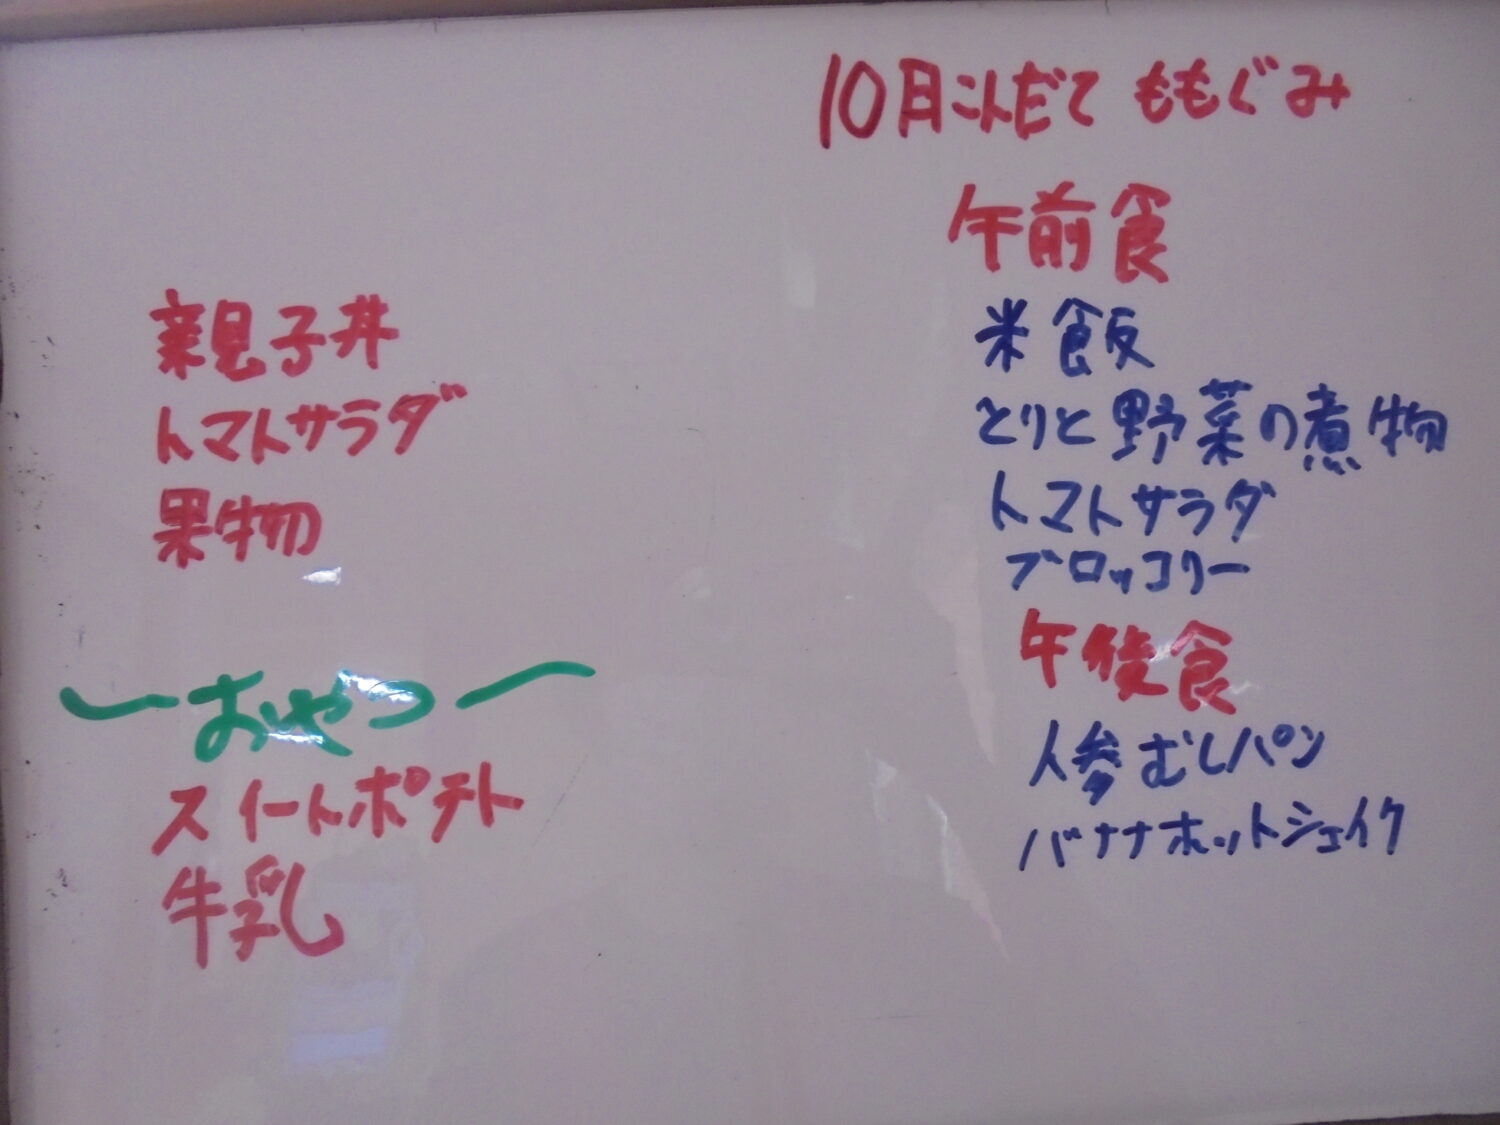 親子丼
トマトサラダ
果物
〜おやつ〜
スイートポテト
牛乳
10月こんだて ももぐみ
午前食
米飯
とりと野菜の煮物
トマトサラダ
ブロッコリー
午後食
人参むしパン
バナナホットシェイク